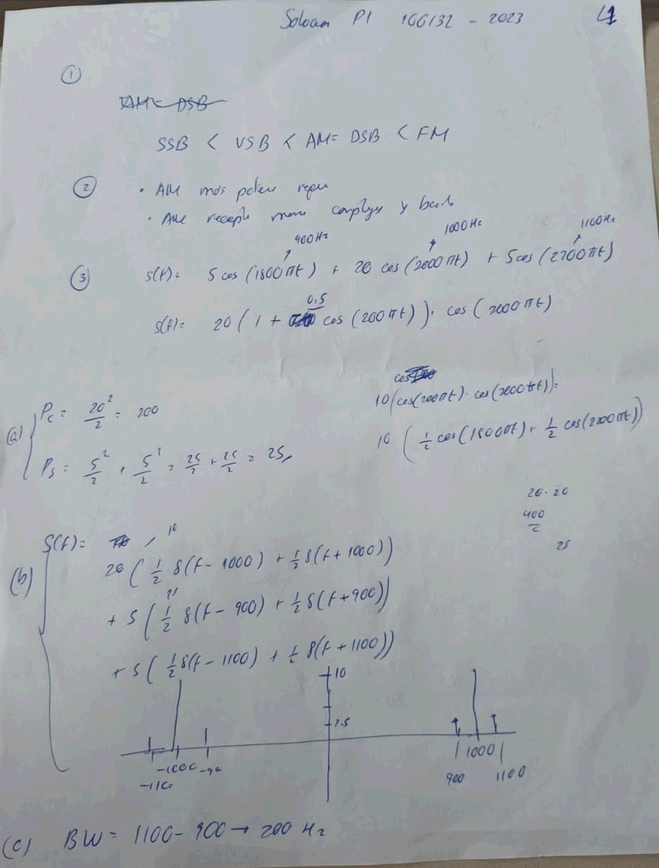 Solucion P1 1GG132 - 2023
1
①
AM < DSB
SSB < VSB < AM = DSB < FM
② • AM más potenc reque
• AM recept menos complejo y barato
900Hz 1000Hz 1100Hz
③ s(t)= 5cos(1800πt) + 20 cos(2000πt) + 5cos(2200πt)
0.5
s(t)= 20(1 + cos(200πt)). cos(2000πt)
cos
10(cos(200πt). cos(2000πt))=
(a) Pc = 20²/2 = 200
10 (1/2 cos(1800πt) + 1/2 cos(2200πt))
Ps = 5²/2 + 5²/2 = 25/2 + 25/2 = 25
20.20
400/2
25
(b) S(f)=
10
20 (1/2 δ(f-1000) + 1/2 δ(f+1000))
+ 5 (1/2 δ(f-900) + 1/2 δ(f+900))
+ 5 (1/2 δ(f-1100) + 1/2 δ(f+1100))
10
2.5
-1000 -900 1000
-1100 900 1100
(c) BW = 1100-900 → 200 Hz